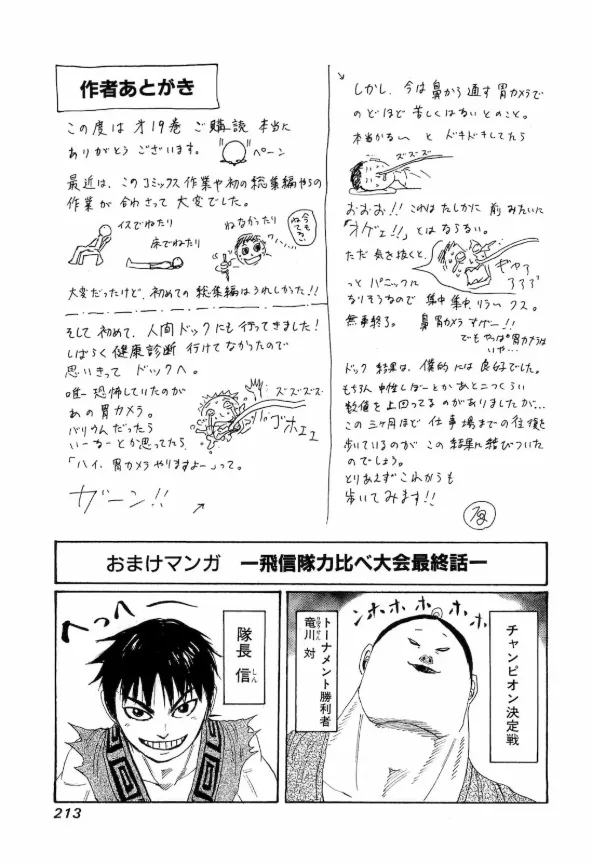 作者あとがき
この度は 才19巻 ご購読 本当に
ありがとう ございます。
ペーン
最近は、このコミックス作業や初の総集編やらの
作業が 合わさって 大変でした。
イスでねたり
床でねたり
ねなかったり
ワハ…
今も
ねてる!
大変だったけど、初めての 総集編はうれしかった!!
そして 初めて、人間ドックにも行ってきました!
しばらく健康診断 行けてなかったので
思いきって ドックへ。
唯一恐怖していたのが
あの胃カメラ。
バリウムだったら
いーなーとか思ってたら
「ハイ、胃カメラやりますよー」って。
ズズズズ
ゴホェェ
ガーン!!
しかし、今は鼻から通す胃カメラで
のどほど苦しくはないとのこと。
本当かなぁ と ドキドキしてたら
ズズズ
おおお!! これはたしかに 前みたいに
「オゲェ!!」とはならない。
ただ 気を抜くと、
っと パニックに
なりそうなので 集中集中、リラックス。
無事終了。 鼻胃カメラ すげー!!
でもやっぱ胃カメラは
いや…
ドック 結果は、僕的には 良好でした。
もちろん 中性しぼーとか あと二つくらい
数値を上回ってるのがありましたが…
この三ヶ月ほど 仕事場までの往復を
歩いているのが この結果に結びついた
のでしょう。
とりあえずこれからも
歩いてみます!!
おまけマンガ ー飛信隊力比べ大会最終話ー
チャンピオン決定戦
ンホホホホホ
トーナメント勝利者
竜川 対
りゅうせん
隊長 信
しん
へっへー
213